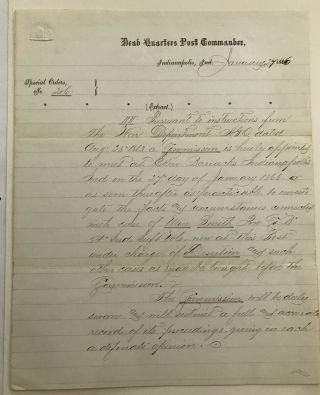 Head Quarters Post Commander,
Indianapolis, Ind. January 1866
Special Orders,
No. 206
(Extract.)
Pursuant to instructions from
the War Department A.G.O. dated
Aug. 25" 1863 a Commission is hereby appointed
to meet at Barracks Indianapolis
Ind on the 29" day of January 1866 or
as soon thereafter as practicable to investi
gate the facts and circumstances connected
with case of Smith Co "B"
Ind Vols, now at this Post
under charge of Desertion and such
other cases as may be brought before the
Commission.
The Commission will be duly
sworn and will submit a full and accurate
record of its proceedings giving in each
a definate opinion.